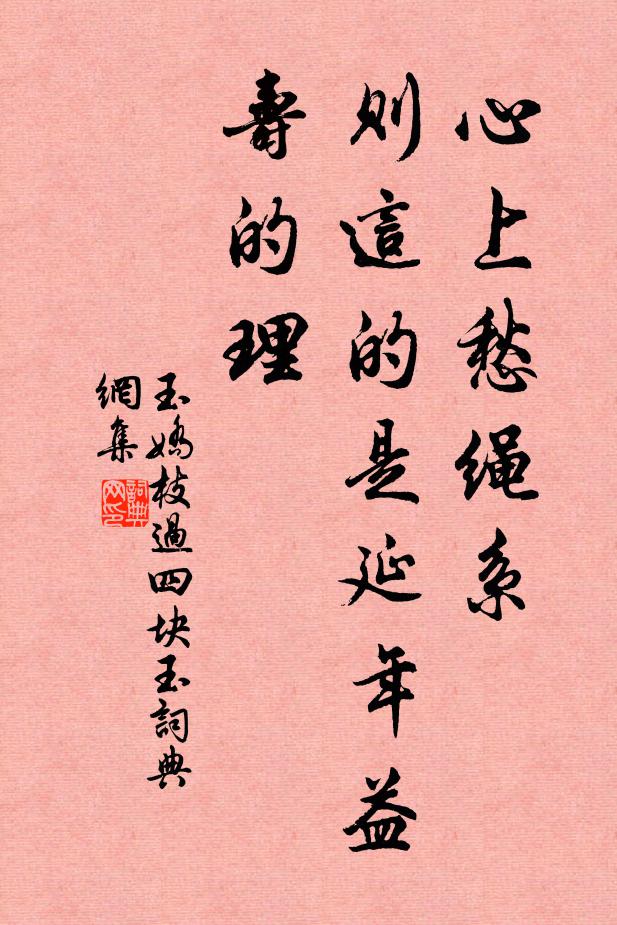 心上愁绳系
則這的是延年益
壽的理
玉嬌枝過四块玉詞典
網集
詞典
网印